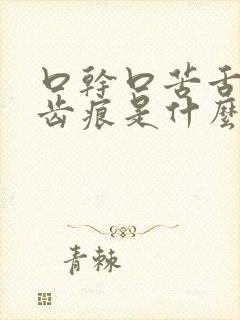 口幹口苦舌
齒痕是什麼
青棘